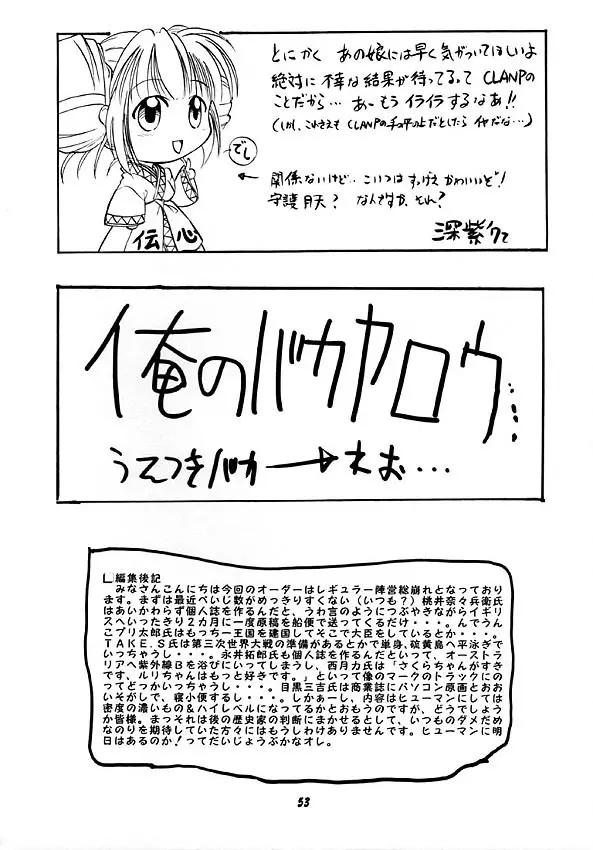 とにかく あの娘には早く気がついてほしいよ
絶対に不幸な結果が待ってるって CLANPの
ことだから… あーもう イライラするなあ!!
(しかし、これさえも CLANPの手の平の上だとしたら イヤだな…)
でし
← 関係ないけど… こいつは すっげえ かわいいぞ!
守護月天? なんですか、それ?
伝 心
深紫
俺のバカヤロウ…
うえつきバカ→ えお…
編集後記
みなさんこんにちは今回のオーダーはレギュラー陣営総崩れとなっており
ます。まずは最近ページ数がめっきりすくない(いつも?)桃井奈々兵衛氏
はあいかわらず個人誌を作るんだと、うわ言のようにつぶやきながらイギリ
スへいったきり2カ月に一度原稿を船便で送ってくるだけ・・・。んでうん
こプリ太郎氏はもっちー王国を建国してそこで大臣をしているとか・・・。
TAKE.S氏は第三次世界大戦の準備があるとかで単身、硫黄島へ平泳ぎで
いっちゃうし・・・。永井拓郎氏も個人誌を作るんだといって、オーストラ
リアへ紫外線Bを浴びにいってしまうし、西月力氏は「さくらちゃんがすき
です、ルリちゃんはもっと好きです。」といって像のマークのトラックにの
ってどっかいっちゃうし・・・。目黒三吉氏は商業誌にパソコン原画とおお
いそがしで、寝小便するし・・・。しかぁーし、内容はヒューマンにしては
密度の濃いもの&ハイレベルになってるかとおもうのですが、どうでしょう
か皆様。まっそれは後の歴史家の判断にまかせるとして、いつものダメだめ
なのりを期待していた方々にはもうしわけありません。ヒューマンに明
日はあるのか!ってだいじょうぶかなオレ。
53